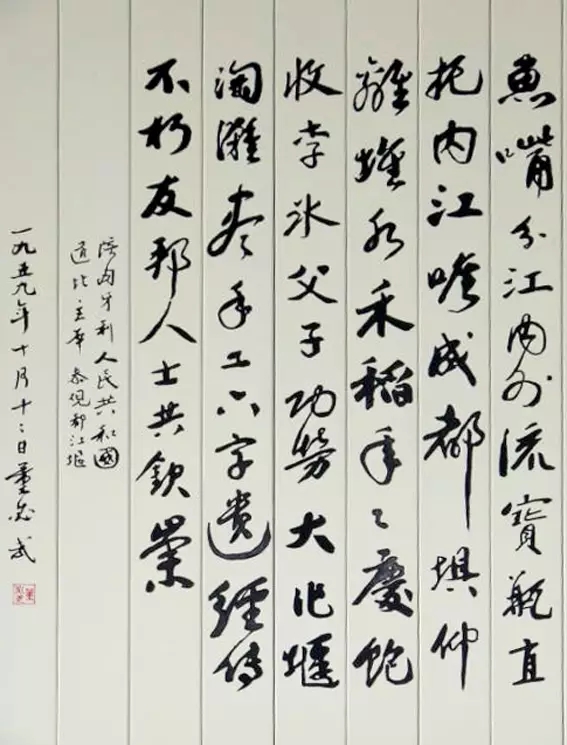 魚嘴分江内外流寶瓶直
扼内江喉成都埧仰
離堆水禾稻年々慶飽
收李冰父子功勞大作堰
淘灘尽手工六字遺經傳
不朽友邦人士共欽崇
陪匈牙利人民共和國
道比主席参观都江堰
一九五九年十月十二日董必武